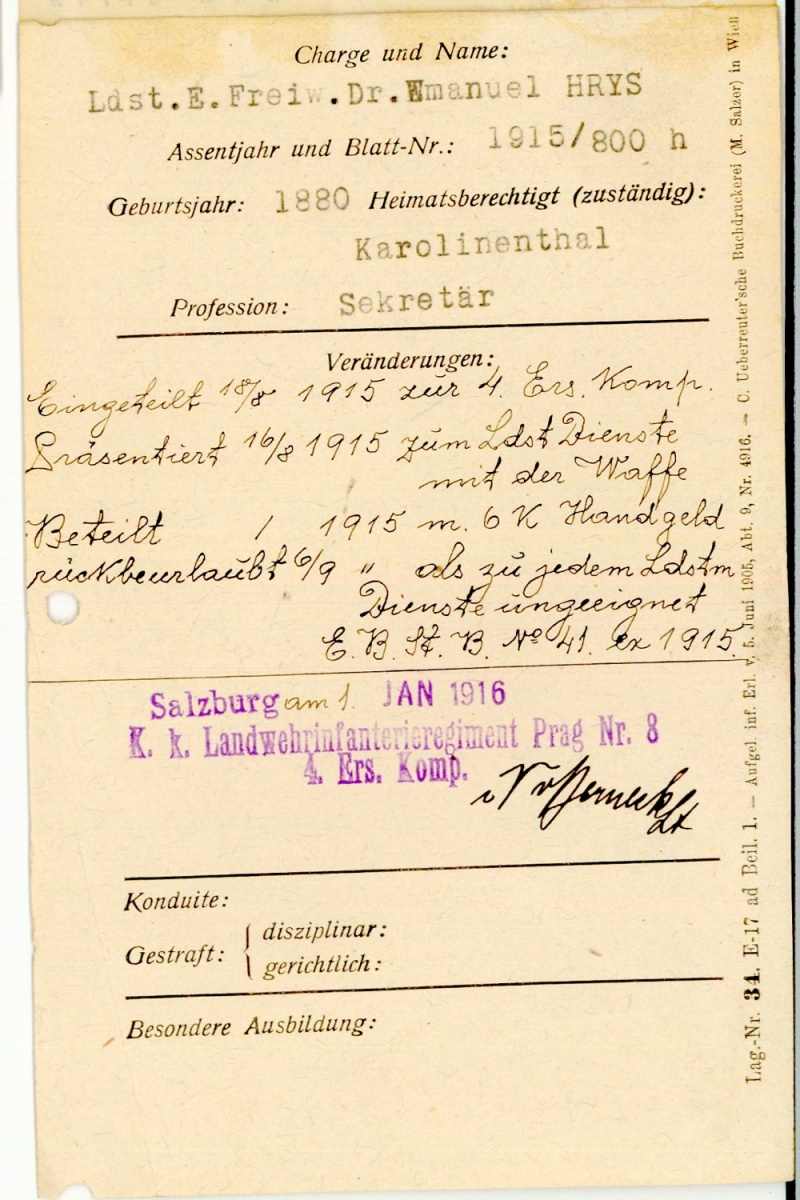 Charge und Name:
Ldst.E.Freiw.Dr.Emanuel HRYS
Assentjahr und Blatt-Nr.: 1915/800 h
Geburtsjahr: 1880 Heimatsberechtigt (zuständig):
Karolinenthal
Profession: Sekretär
Veränderungen:
Eingeteilt 18/8 1915 zur 4. Ers. Komp.
Präsentiert 16/8 1915 zum Ldst Dienste
mit der Waffe
Beteilt / 1915 m. 6 K Handgeld
rückbeurlaubt 6/9 " als zu jedem Ldstm
Dienste ungeeignet
E. B. St. B. No 41. ex 1915.
Salzburg am 1. JAN 1916
K. k. Landwehrinfanterieregiment Prag Nr. 8
4. Ers. Komp.
Konduite:
Gestraft: { disziplinar:
gerichtlich:
Besondere Ausbildung:
Lag.-Nr. 34. E-17 ad Beil. 1. — Aufgel. inf. Erl. v. 5. Juni 1905, Abt. 9, Nr. 4916. — C. Ueberreuter'sche Buchdruckerei (M. Salzer) in Wien